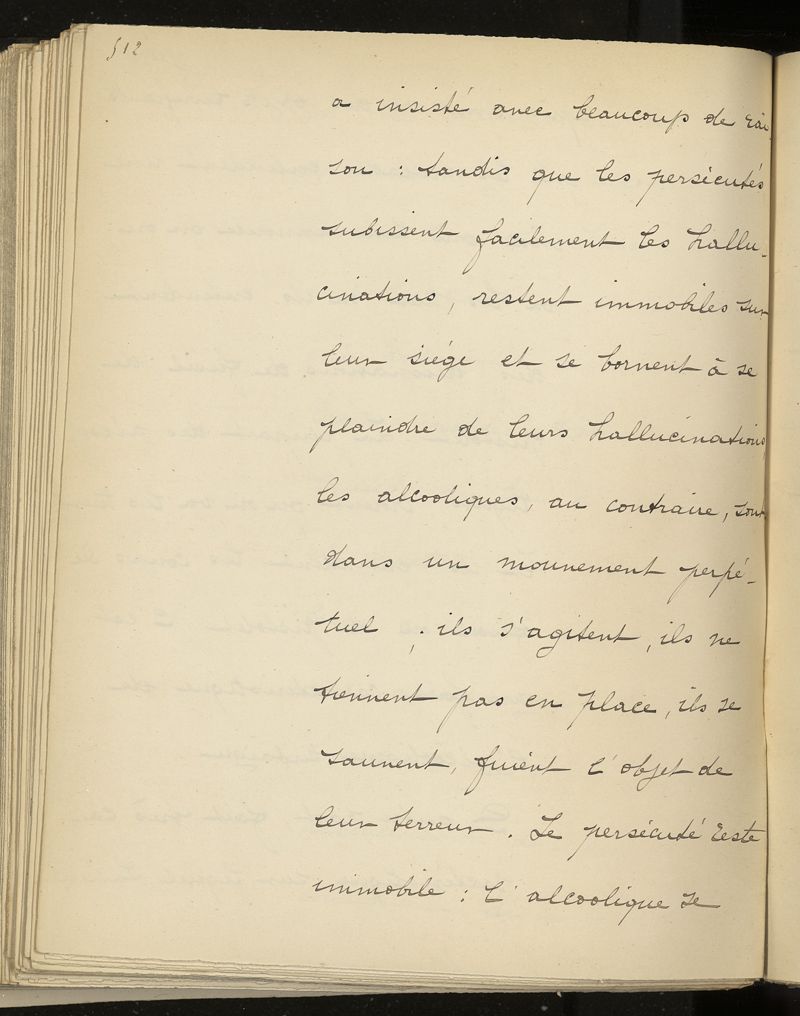 512
a insisté avec beaucoup de rai-
son : tandis que les persécutés
subissent facilement les hallu-
cinations, restent immobiles sur
leur siége et se bornent à se
plaindre de leurs hallucinations,
les alcooliques, au contraire, sont
dans un mouvement perpé-
tuel ; ils s'agitent, ils ne
tiennent pas en place, ils se
sauvent, fuient l'objet de
leur terreur. Le persécuté reste
immobile : l'alcoolique se